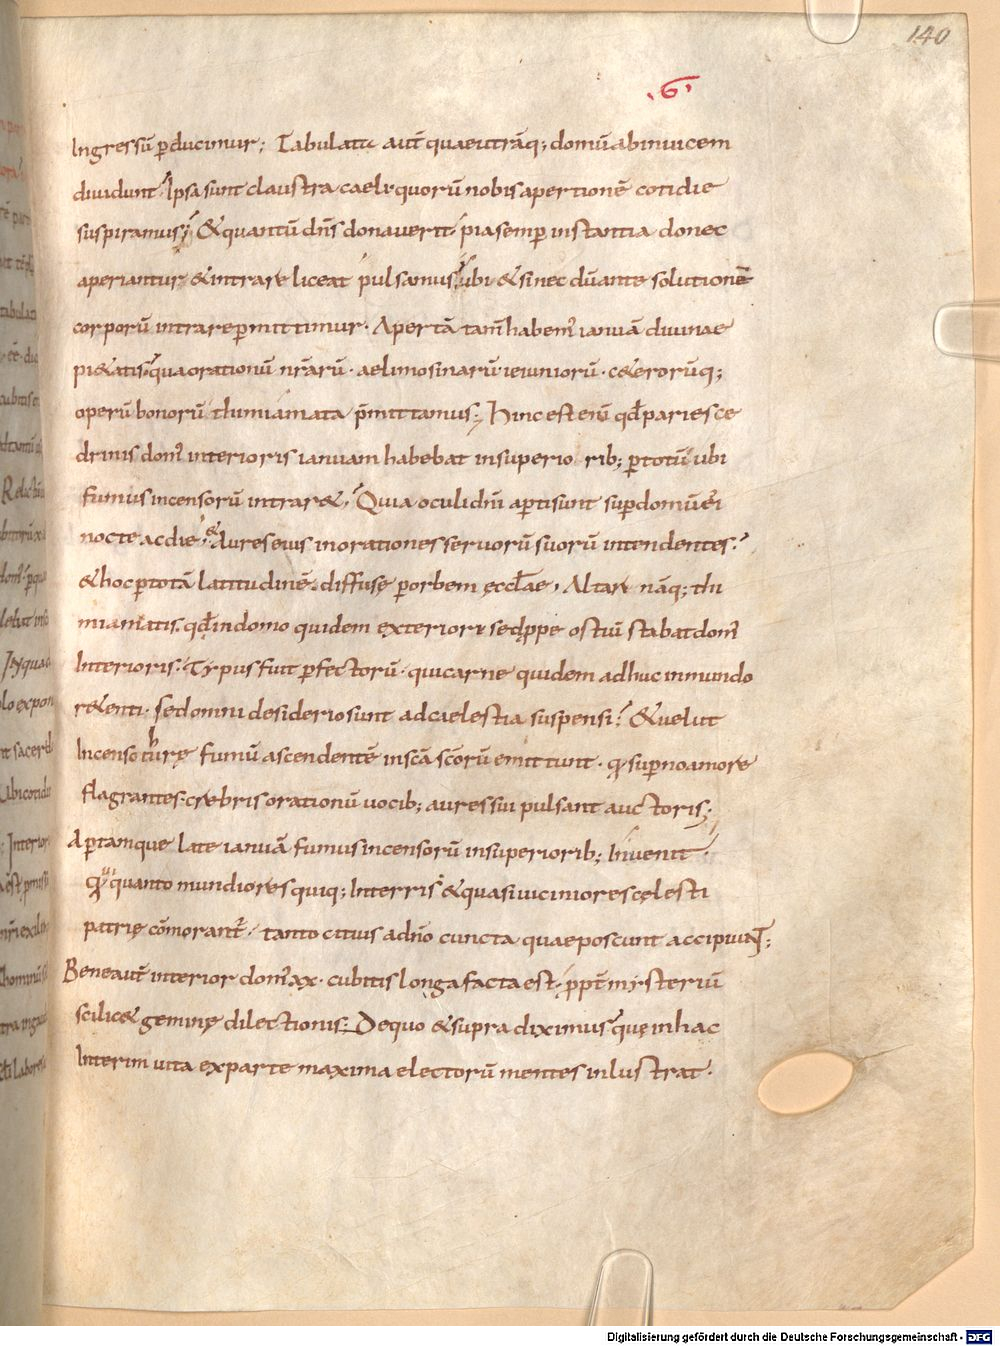 140
.6.
Ingressū ꝑducimur; Tabulata aut̄ quaeutrāq; domū abinuicem
diuidunt. Ipsa sunt claustra caeli quorū nobis apertionē cotidie
suspiramus; & quantū dn̄s donauerit piasemꝑ instantia donec
aperiantur & intrare liceat pulsamus. ubi & si nec dū ante solutionē
corporū intrare ꝑmittimur. Apertā tam̄ habem; ianuā diuinae
pi&atis. qua orationū nr̄arū. aelimosinarū. ieiuniorū. c&erorūq;
operū bonorū thimiamata p̄mittamus; Hinc est enī qđ paries ce
drinus dom; interioris ianuam habebat in superiorib; ꝑ totū ubi
fumus incensorū intrar&. Quia oculi dn̄i aꝑti sunt suꝑ domū ei
nocte ac die. & aures eius in orationes seruorū suorū intendentes.
& hoc ꝑ totā latitudinē. diffuse ꝑ orbem ęccłae, Altare nāq; thi
miamatis. qđ in domo quidem exteriori sed ꝓpe ostiū stabat dom;
Interioris. Typus fuit ꝑfectorū. qui carne quidem adhuc in mundo
r&enti. sed omni desiderio sunt ad caelestia suspensi. & uelut
Incenso thurę fumū ascendentē in scā scōrū emittunt. q; suꝑno amore
flagrantes. crebris orationū uocib; aures sui pulsant auctoris;
Aꝑtamque late ianuā fumus incensorū in superiorib; Inuenit.
Quia quanto mundiores quiq; In terris & quasi uiciniores cęlesti
patrię cōmorant̄. tanto citius a dn̄o cuncta quae poscunt accipiunt;
Bene aut̄ interior dom; xx. cubitis longa facta est. ꝓpt̄ mysteriū
scilic& geminę dilectionis; De quo & supra diximus quę in hac
Interim uita ex parte maxima electorū mentes inlustrat.
Digitalisierung gefördert durch die Deutsche Forschungsgemeinschaft - DFG